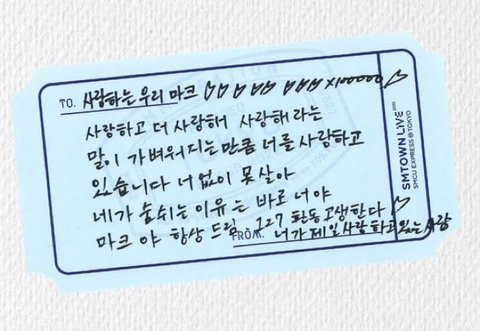 TO. 사랑하는 우리 마크 ♡♡♡♡♡♡♡ x1000000♡
사랑하고 더 사랑해 사랑해라는
말이 가벼워지는 만큼 너를 사랑하고
있습니다 너없이 못살아
네가 숨쉬는 이유는 바로 너야
마크야 항상 드림 127 활동 고생한다 ♡
FROM. 너가 제일 사랑하고 있는 사람
SMTOWN LIVE 2022
SMCU EXPRESS @TOKYO